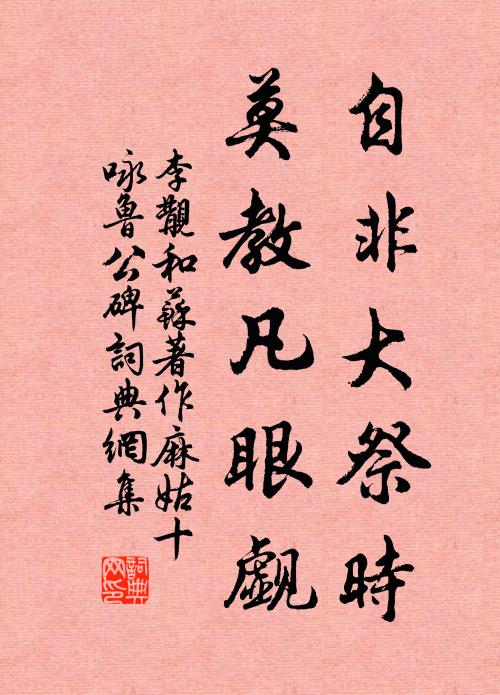 自非大祭時
莫教凡眼覷
李覯和蘇著作麻姑十
咏魯公碑詞典網集
詞典
网印